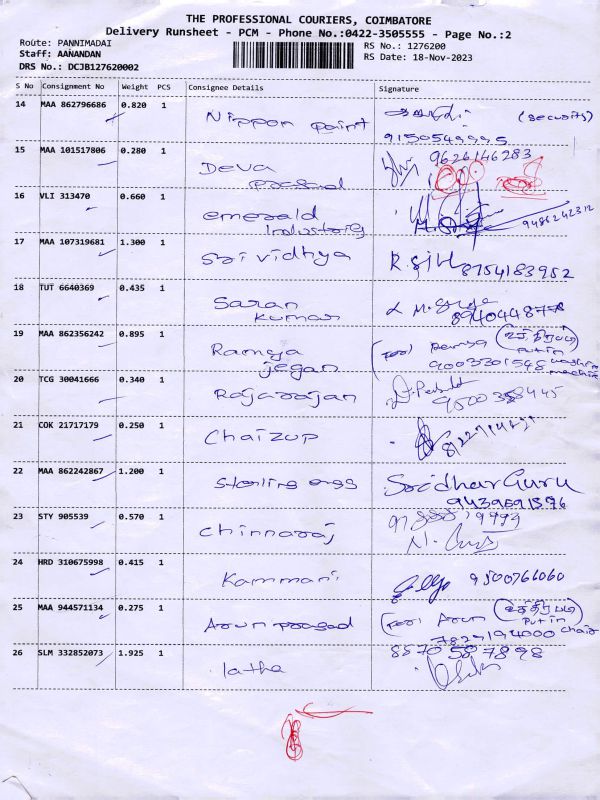 THE PROFESSIONAL COURIERS, COIMBATORE
Delivery Runsheet - PCM - Phone No.:0422-3505555 - Page No.:2
Route: PANNIMADAI
Staff: AANANDAN
DRS No.: DCJB127620002
RS No.: 1276200
RS Date: 18-Nov-2023
S No Consignment No Weight PCS Consignee Details Signature
14 MAA 862796686 0.820 1 Nippon paint (Security)
15 MAA 101517806 0.280 1 Deva prasad 9626146283
16 VLI 313470 0.660 1 emerald 9486242312
17 MAA 107319681 1.300 1 Sri vidhya 8754183952
18 TUT 6640369 0.435 1 Saran Kumar
19 MAA 862356242 0.895 1 Ramya jegan Ramya Put in 9003301548 washing machine
20 TCG 30041666 0.340 1 Rajarajan
21 COK 21717179 0.250 1 Chaizup
22 MAA 862242867 1.200 1 Sterling Sridhar Guru
23 STY 905539 0.570 1 Chinnaraj
24 HRD 310675998 0.415 1 Kammani 9500766060
25 MAA 944571134 0.275 1 Arun prasad Arun Put in chair
26 SLM 332852073 1.925 1 latha 8870587898